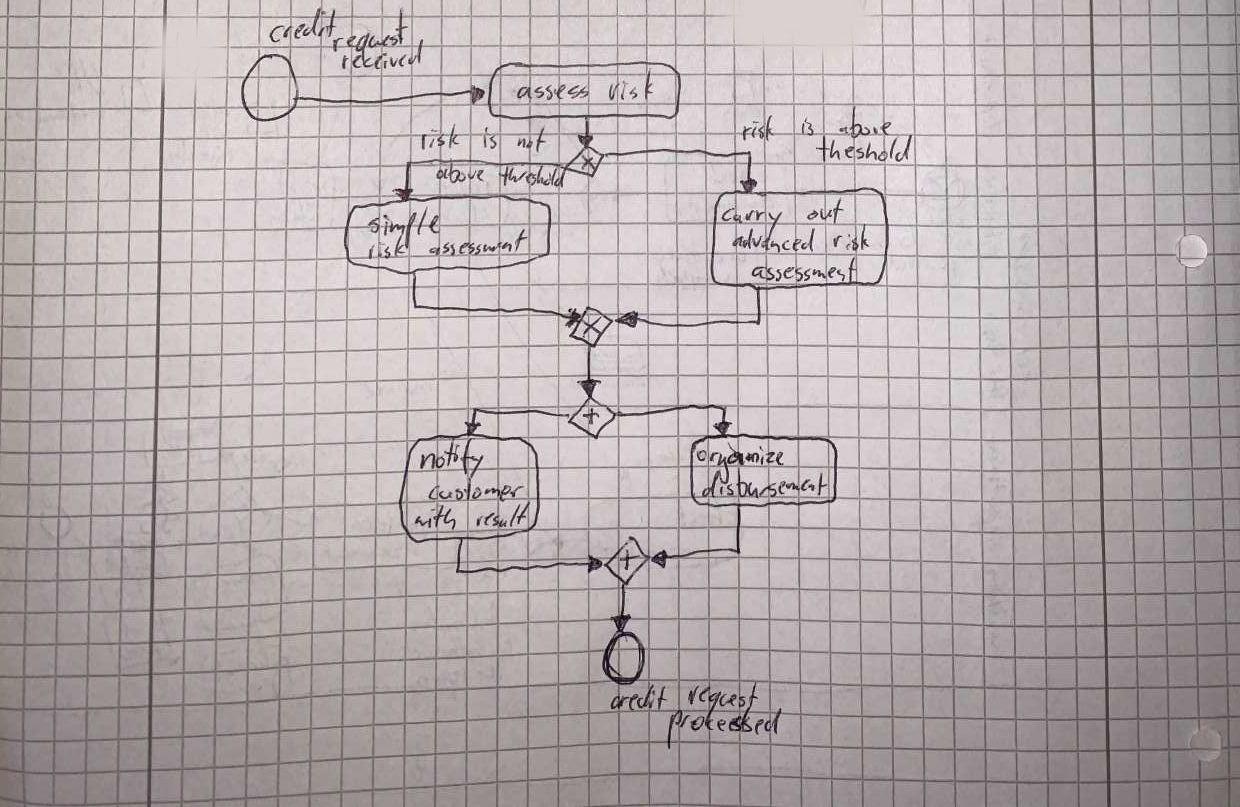 credit
request
received
assess risk
risk is not
above threshold
risk is above
theshold
simple
risk assessment
carry out
advanced risk
assessment
notify
customer
with result
organize
disbursement
credit request
processed